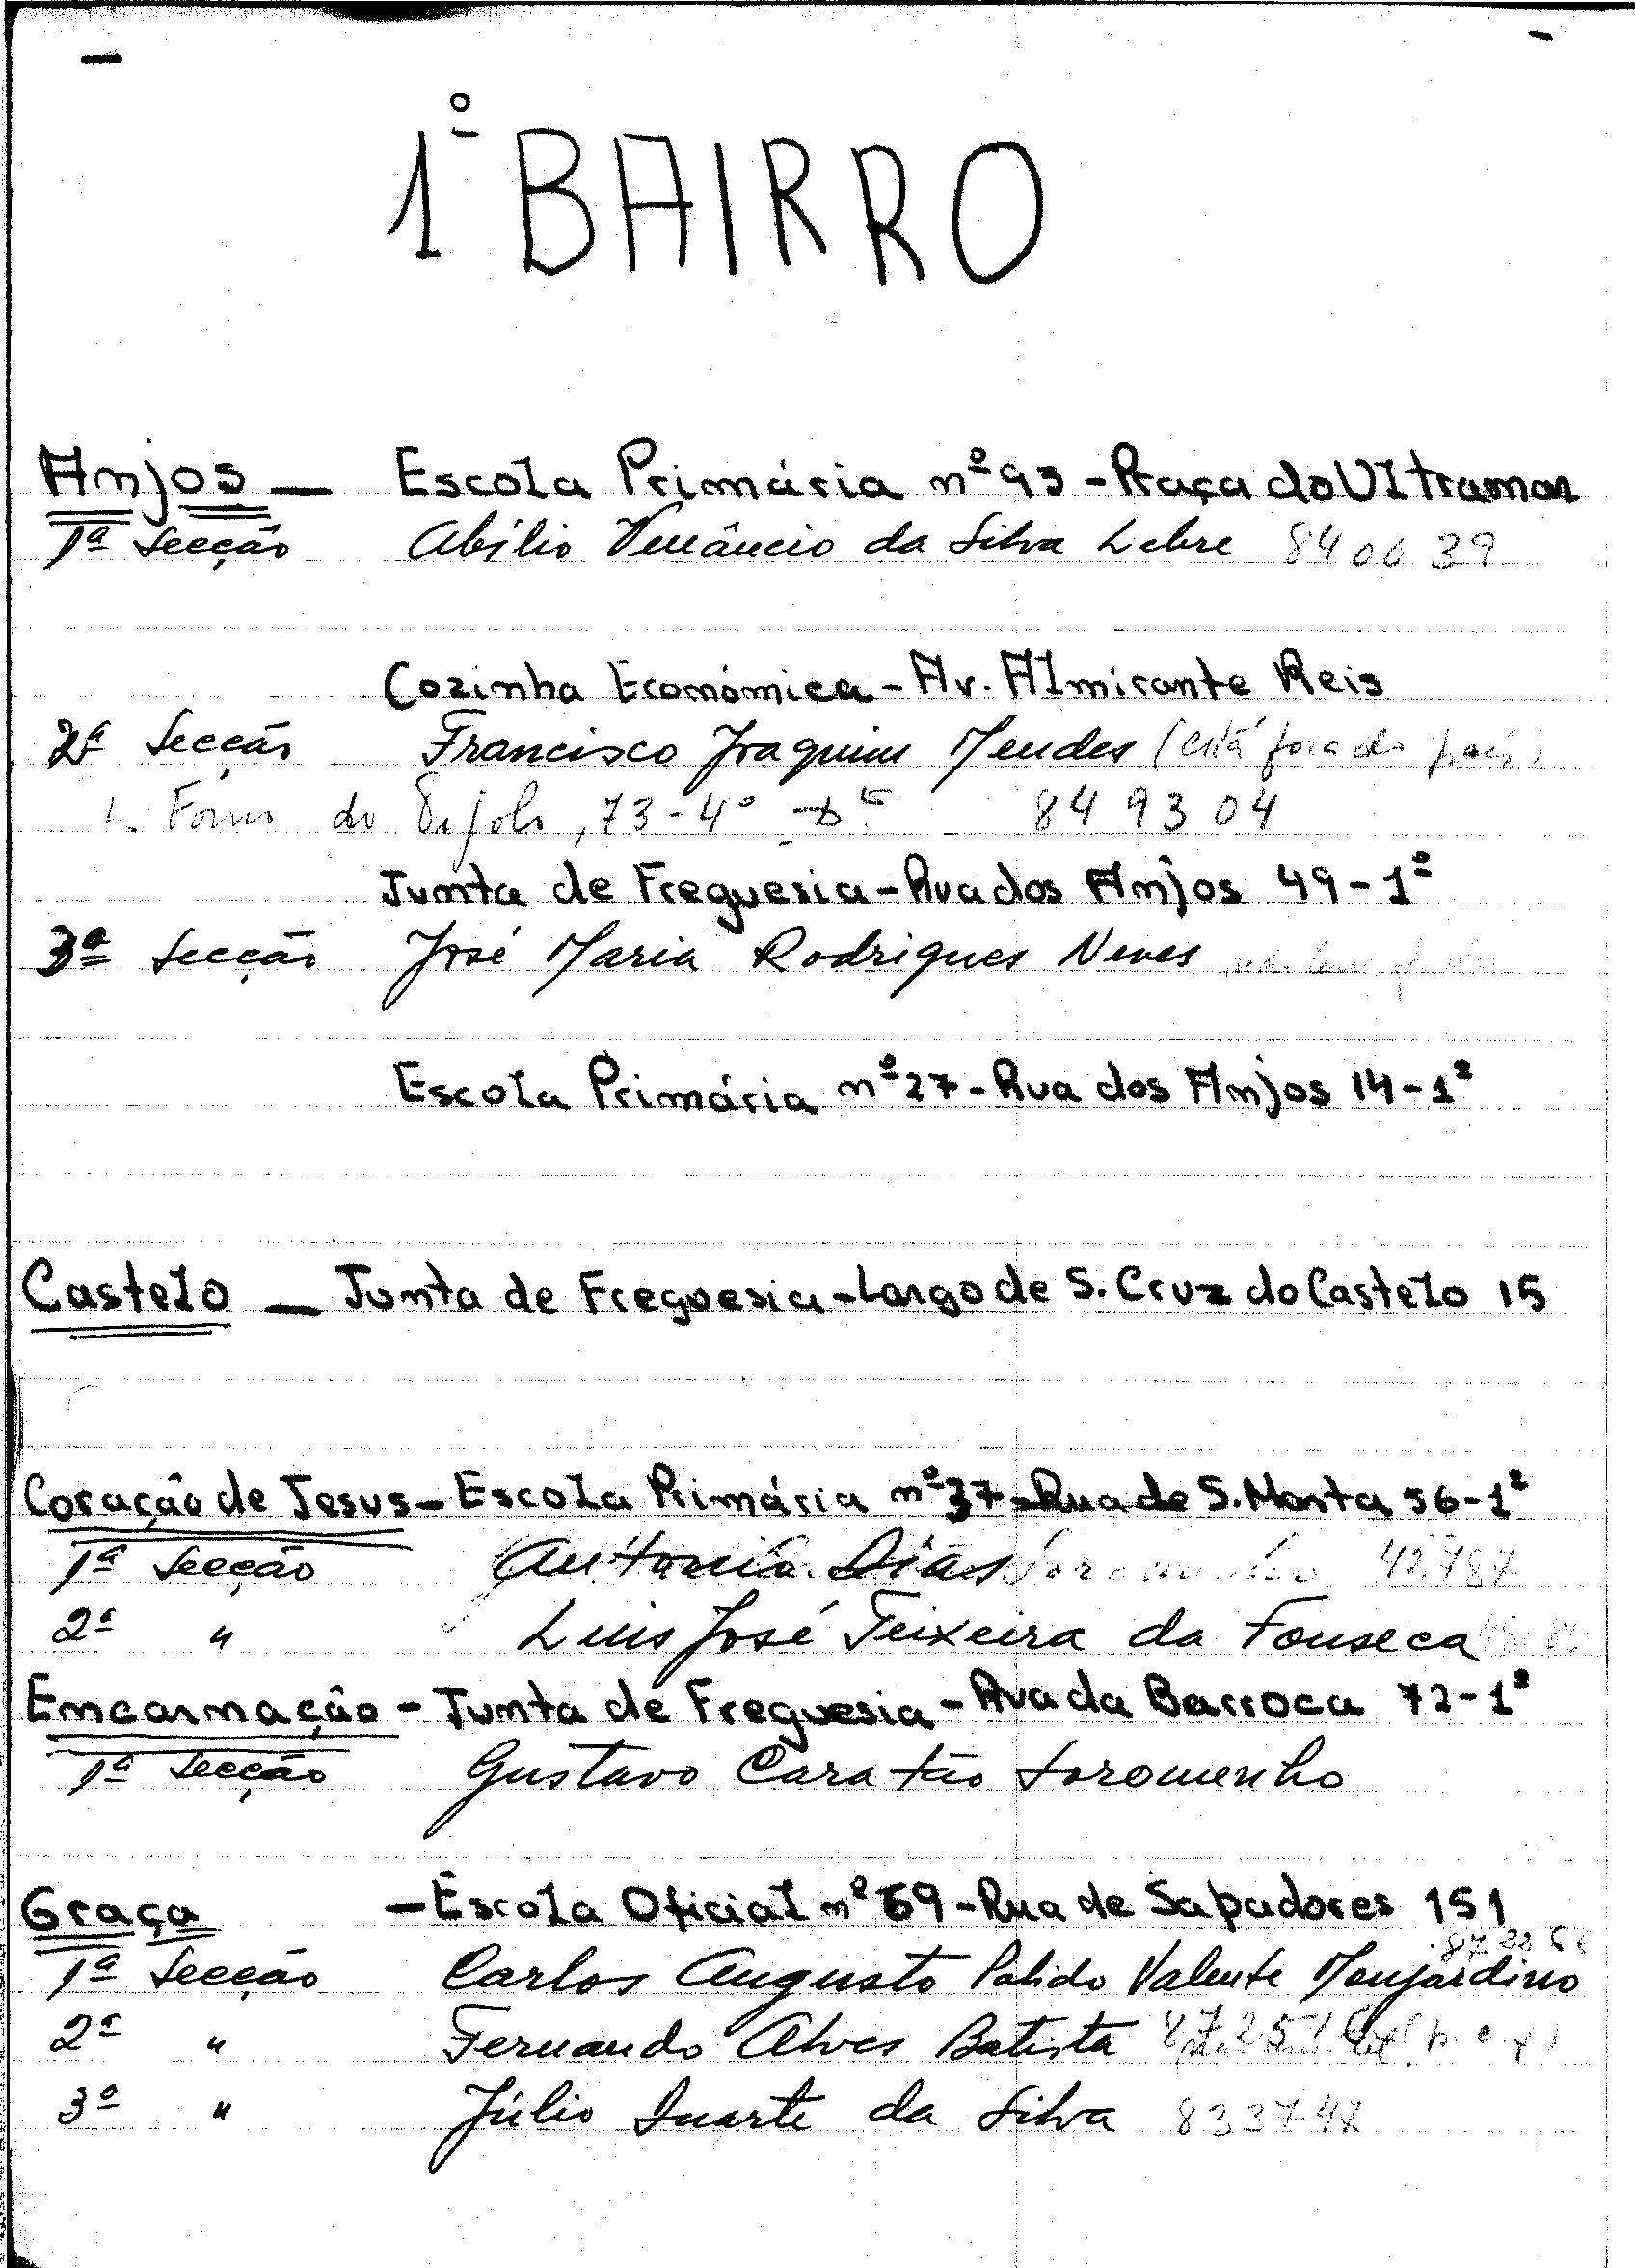 1º BAIRRO
Anjos — Escola Primária nº 93 - Praça do Ultramar
1ª Secção Abílio Venâncio da Silva Lebre 840039
Cozinha Económica - Av. Almirante Reis
2ª Secção Francisco Joaquim Mendes (está fora do país)
do Tijolo, 73-4º 849304
Junta de Freguesia - Rua dos Anjos 49-1º
3ª Secção José Maria Rodrigues Neves
Escola Primária nº 27 - Rua dos Anjos 14-1º
Castelo — Junta de Freguesia - Largo de S. Cruz do Castelo 15
Coração de Jesus - Escola Primária nº 37 - Rua de S. Marta 56-1º
1ª Secção António Dias
2ª " Luis José Teixeira da Fonseca
Encarnação - Junta de Freguesia - Rua da Barroca 72-1º
1ª Secção Gustavo Caratão Soromenho
Graça - Escola Oficial nº 69 - Rua de Sapadores 151
1ª Secção Carlos Augusto Pulido Valente Monjardino
2ª " Fernando Alves Batista
3ª " Júlio Duarte da Silva